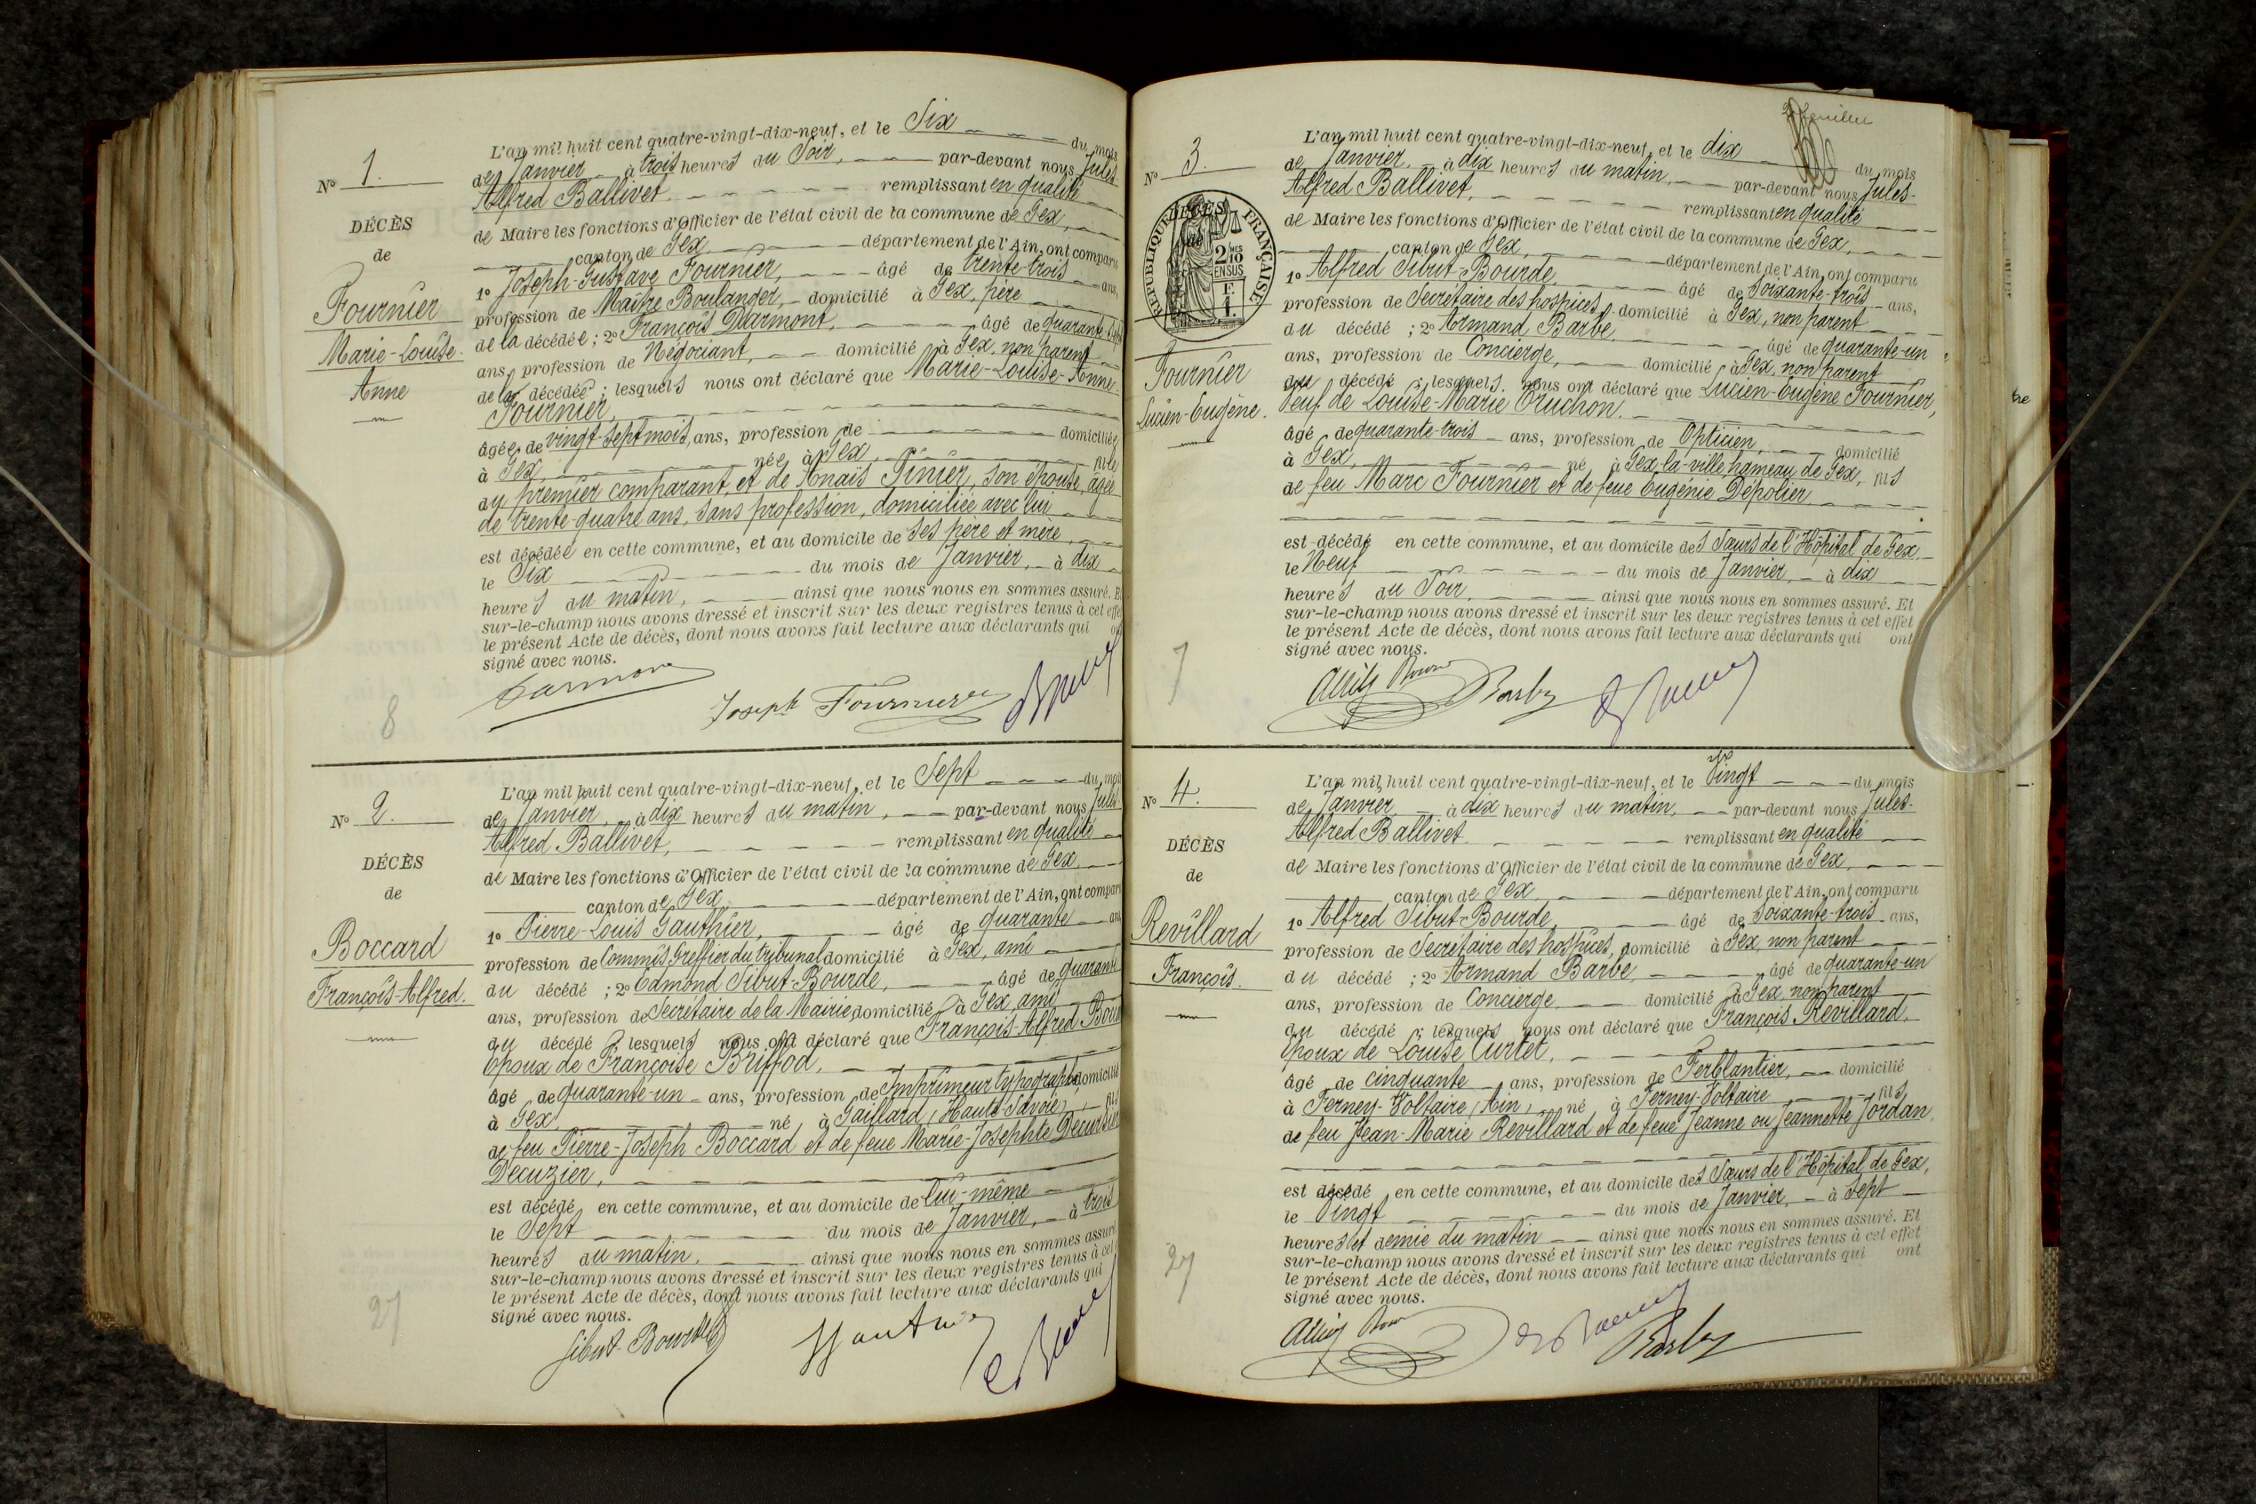 N° 1.
DÉCÈS
de
Fournier
Marie-Louise-
Anne
L'an mil huit cent quatre-vingt-dix-neuf, et le Six du mois
de Janvier à trois heures du Soir, par-devant nous Jules-
Alfred Ballivet remplissant en qualité
de Maire les fonctions d'Officier de l'état civil de la commune de Gex,
canton de Gex département de l'Ain, ont comparu
1° Joseph-Gustave Fournier, âgé de trente-trois ans,
profession de Maître Boulanger, domicilié à Gex, père
de la décédée; 2° François Darmont, âgé de quarante-
ans, profession de Négociant, domicilié à Gex, non parent
de la décédée; lesquels nous ont déclaré que Marie-Louise-Anne
Fournier,
âgée de vingt-sept mois, ans, profession de domiciliée
à Gex, née à Gex, fille
du premier comparant, et de Anaïs Pinier, son épouse, âgée
de trente-quatre ans, sans profession, domiciliée avec lui
est décédée en cette commune, et au domicile de ses père et mère,
le Six du mois de Janvier, à dix
heures du matin, ainsi que nous nous en sommes assuré. Et
sur-le-champ nous avons dressé et inscrit sur les deux registres tenus à cet effet
le présent Acte de décès, dont nous avons fait lecture aux déclarants qui ont
signé avec nous.
Darmont
Joseph Fournier
8
N° 2.
DÉCÈS
de
Boccard
François-Alfred.
L'an mil huit cent quatre-vingt-dix-neuf, et le Sept du mois
de Janvier, à dix heures du matin, par-devant nous Jules-
Alfred Ballivet, remplissant en qualité
de Maire les fonctions d'Officier de l'état civil de la commune de Gex
canton de Gex département de l'Ain, ont comparu
1° Pierre-Louis Gauthier, âgé de quarante ans
profession de Commis Greffier du tribunal domicilié à Gex, ami
du décédé; 2° Edmond Sibut-Bourde, âgé de quarante
ans, profession de Secrétaire de la Mairie, domicilié à Gex, ami
du décédé; lesquels nous ont déclaré que François-Alfred
Époux de Françoise Briffod,
âgé de quarante-un ans, profession de Imprimeur typographe, domicilié
à Gex né à Gaillard, (Haute-Savoie), fils
de feu Pierre-Joseph Boccard et de feue Marie-Josephte
Decuzier,
est décédé en cette commune, et au domicile de lui-même
le Sept du mois de Janvier, à trois
heures du matin, ainsi que nous nous en sommes assuré
sur-le-champ nous avons dressé et inscrit sur les deux registres tenus à cet
le présent Acte de décès, dont nous avons fait lecture aux déclarants qui
signé avec nous.
Sibut-Bourde
Gauthier
27
N° 3.
RÉPUBLIQUE FRANÇAISE
DÉCÈS
de
2/10 EN SUS
F. 1.
Fournier
Lucien-Eugène.
L'an mil huit cent quatre-vingt-dix-neuf, et le dix du mois
de Janvier à dix heures du matin, par-devant nous Jules-
Alfred Ballivet, remplissant en qualité
de Maire les fonctions d'Officier de l'état civil de la commune de Gex,
canton de Gex, département de l'Ain, ont comparu
1° Alfred Sibut-Bourde, âgé de soixante-trois ans,
profession de Secrétaire des hospices, domicilié à Gex, non parent
du décédé; 2° Armand Barbe, âgé de quarante-un
ans, profession de Concierge, domicilié à Gex, non parent
du décédé lesquels nous ont déclaré que Lucien-Eugène Fournier,
Veuf de Louise-Marie Truchon.
âgé de quarante-trois ans, profession de Opticien, domicilié
à Gex, né à Gex-la-ville, hameau de Gex, fils
de feu Marc Fournier et de feue Eugénie Dépolier
est décédé en cette commune, et au domicile des Sœurs de l'Hôpital de Gex,
le Neuf du mois de Janvier, à dix
heures du Soir, ainsi que nous nous en sommes assuré. Et
sur-le-champ nous avons dressé et inscrit sur les deux registres tenus à cet effet
le présent Acte de décès, dont nous avons fait lecture aux déclarants qui ont
signé avec nous.
Barbe
7
N° 4.
DÉCÈS
de
Revillard
François.
L'an mil huit cent quatre-vingt-dix-neuf, et le Vingt du mois
de Janvier à dix heures du matin, par-devant nous Jules-
Alfred Ballivet remplissant en qualité
de Maire les fonctions d'Officier de l'état civil de la commune de Gex,
canton de Gex département de l'Ain, ont comparu
1° Alfred Sibut-Bourde, âgé de Soixante-trois ans,
profession de Secrétaire des hospices, domicilié à Gex, non parent
du décédé; 2° Armand Barbe, âgé de quarante-un
ans, profession de Concierge domicilié à Gex, non parent
du décédé; lesquels nous ont déclaré que François Revillard,
Époux de Louise Curtet,
âgé de cinquante ans, profession de Ferblantier, domicilié
à Ferney-Voltaire, (Ain), né à Ferney-Voltaire fils
de feu Jean-Marie Revillard et de feue Jeanne ou Jeannette Jordan
est décédé en cette commune, et au domicile des Sœurs de l'Hôpital de Gex,
le Vingt du mois de Janvier, à Sept
heures et demie du matin ainsi que nous nous en sommes assuré. Et
sur-le-champ nous avons dressé et inscrit sur les deux registres tenus à cet effet
le présent Acte de décès, dont nous avons fait lecture aux déclarants qui ont
signé avec nous.
Barbe
27